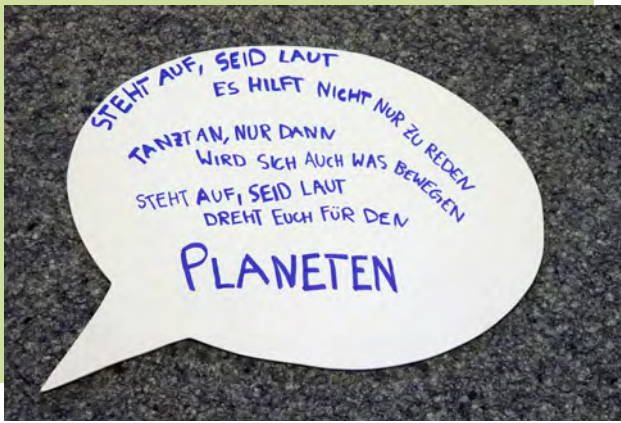 STEHT AUF, SEID LAUT
ES HILFT NICHT NUR ZU REDEN
TANZT AN, NUR DANN
WIRD SICH AUCH WAS BEWEGEN
STEHT AUF, SEID LAUT
DREHT EUCH FÜR DEN
PLANETEN